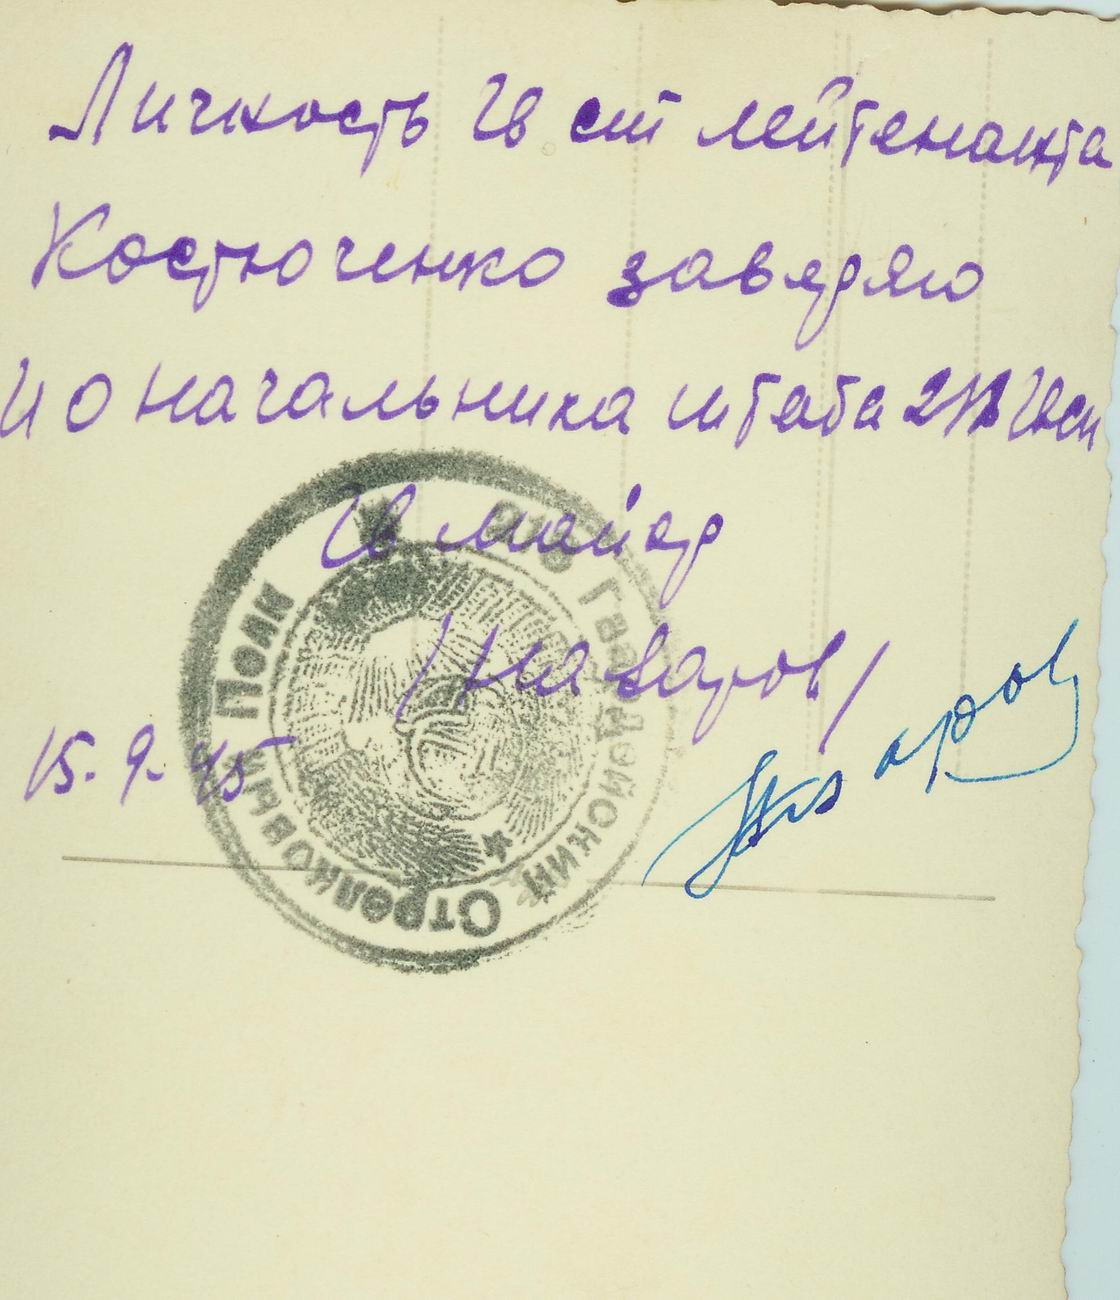 Личность гв ст лейтенанта
Костюченко заверяю
И О начальника штаба гвсп
Гв майор
15.9.45
Гвардейский Стрелковый Полк